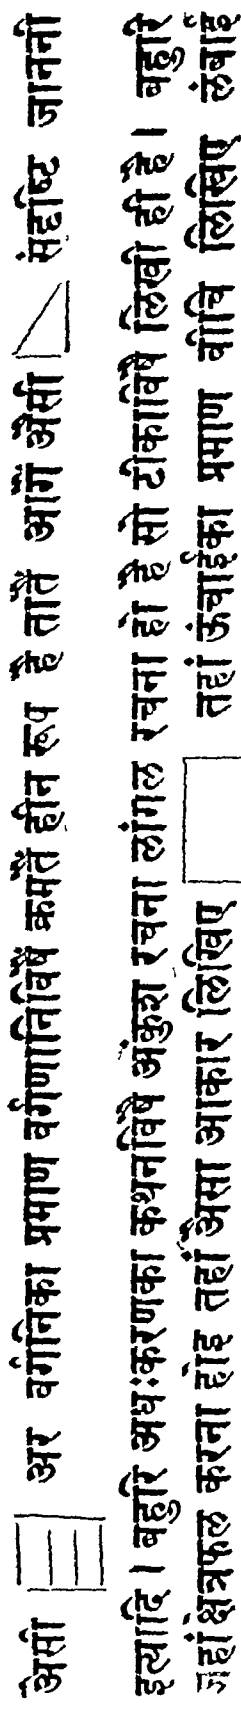 असी अर वर्गनिका प्रमाण वर्गणानिविषै क्रमतें हीन रूप है तातैं आगैं असी संदृष्टि जाननी
इत्यादि । बहुरि अधःकरणका कथनविषै अंकुश रचना लांगल रचना हो है सो टीकाविषै लिखी ही है । बहुरि
जहां क्षेत्रफल करना होइ तहां असा आकार लिखिए तहां ऊंचाईका प्रमाण वीचि लिखिए लंबाई